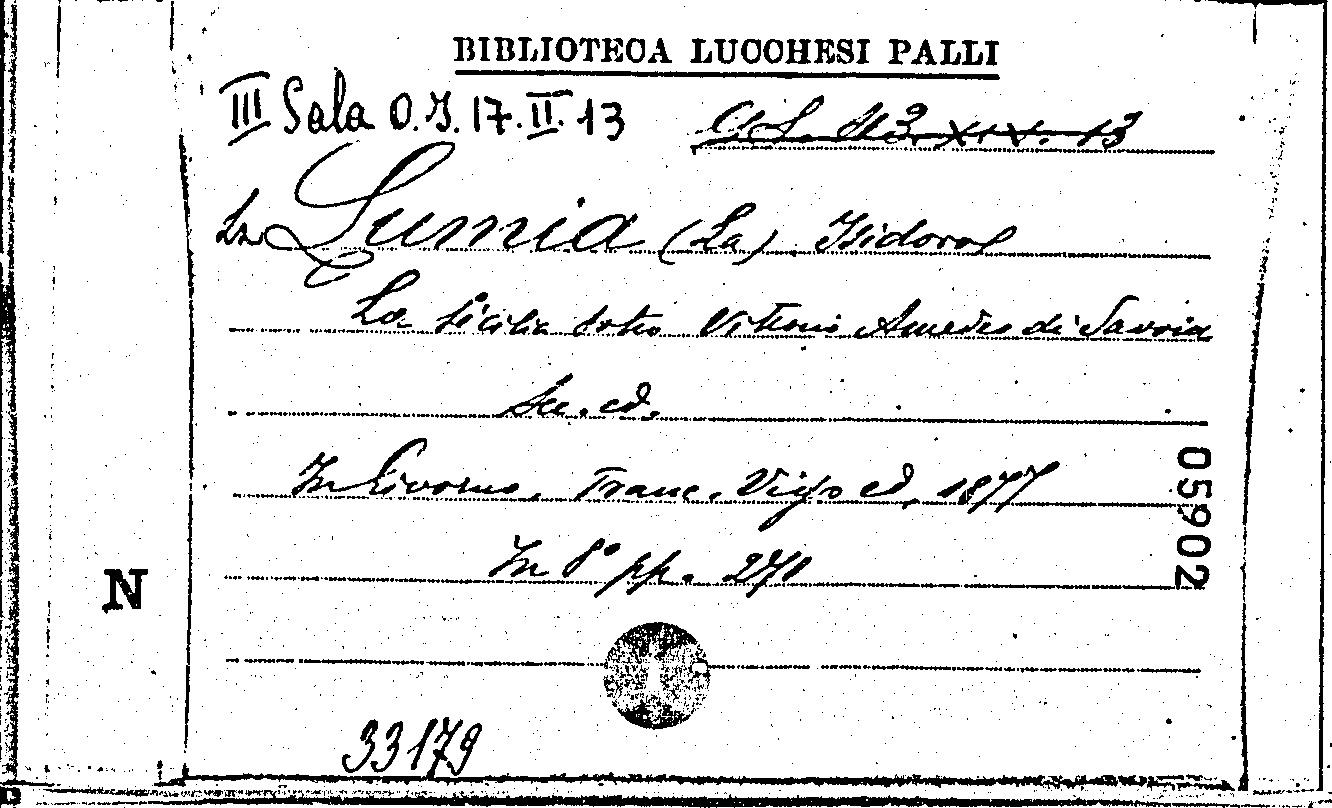 BIBLIOTECA LUCCHESI PALLI
III Sala O.I. 17. II. 13
XIV. 13
La Lumia (La) Isidoro
La Sicilia sotto Vittorio Amedeo di Savoia
Sec. ed.
In Livorno, Franc. Vigo ed, 1877
In 8° pp. 270
05902
N
33179